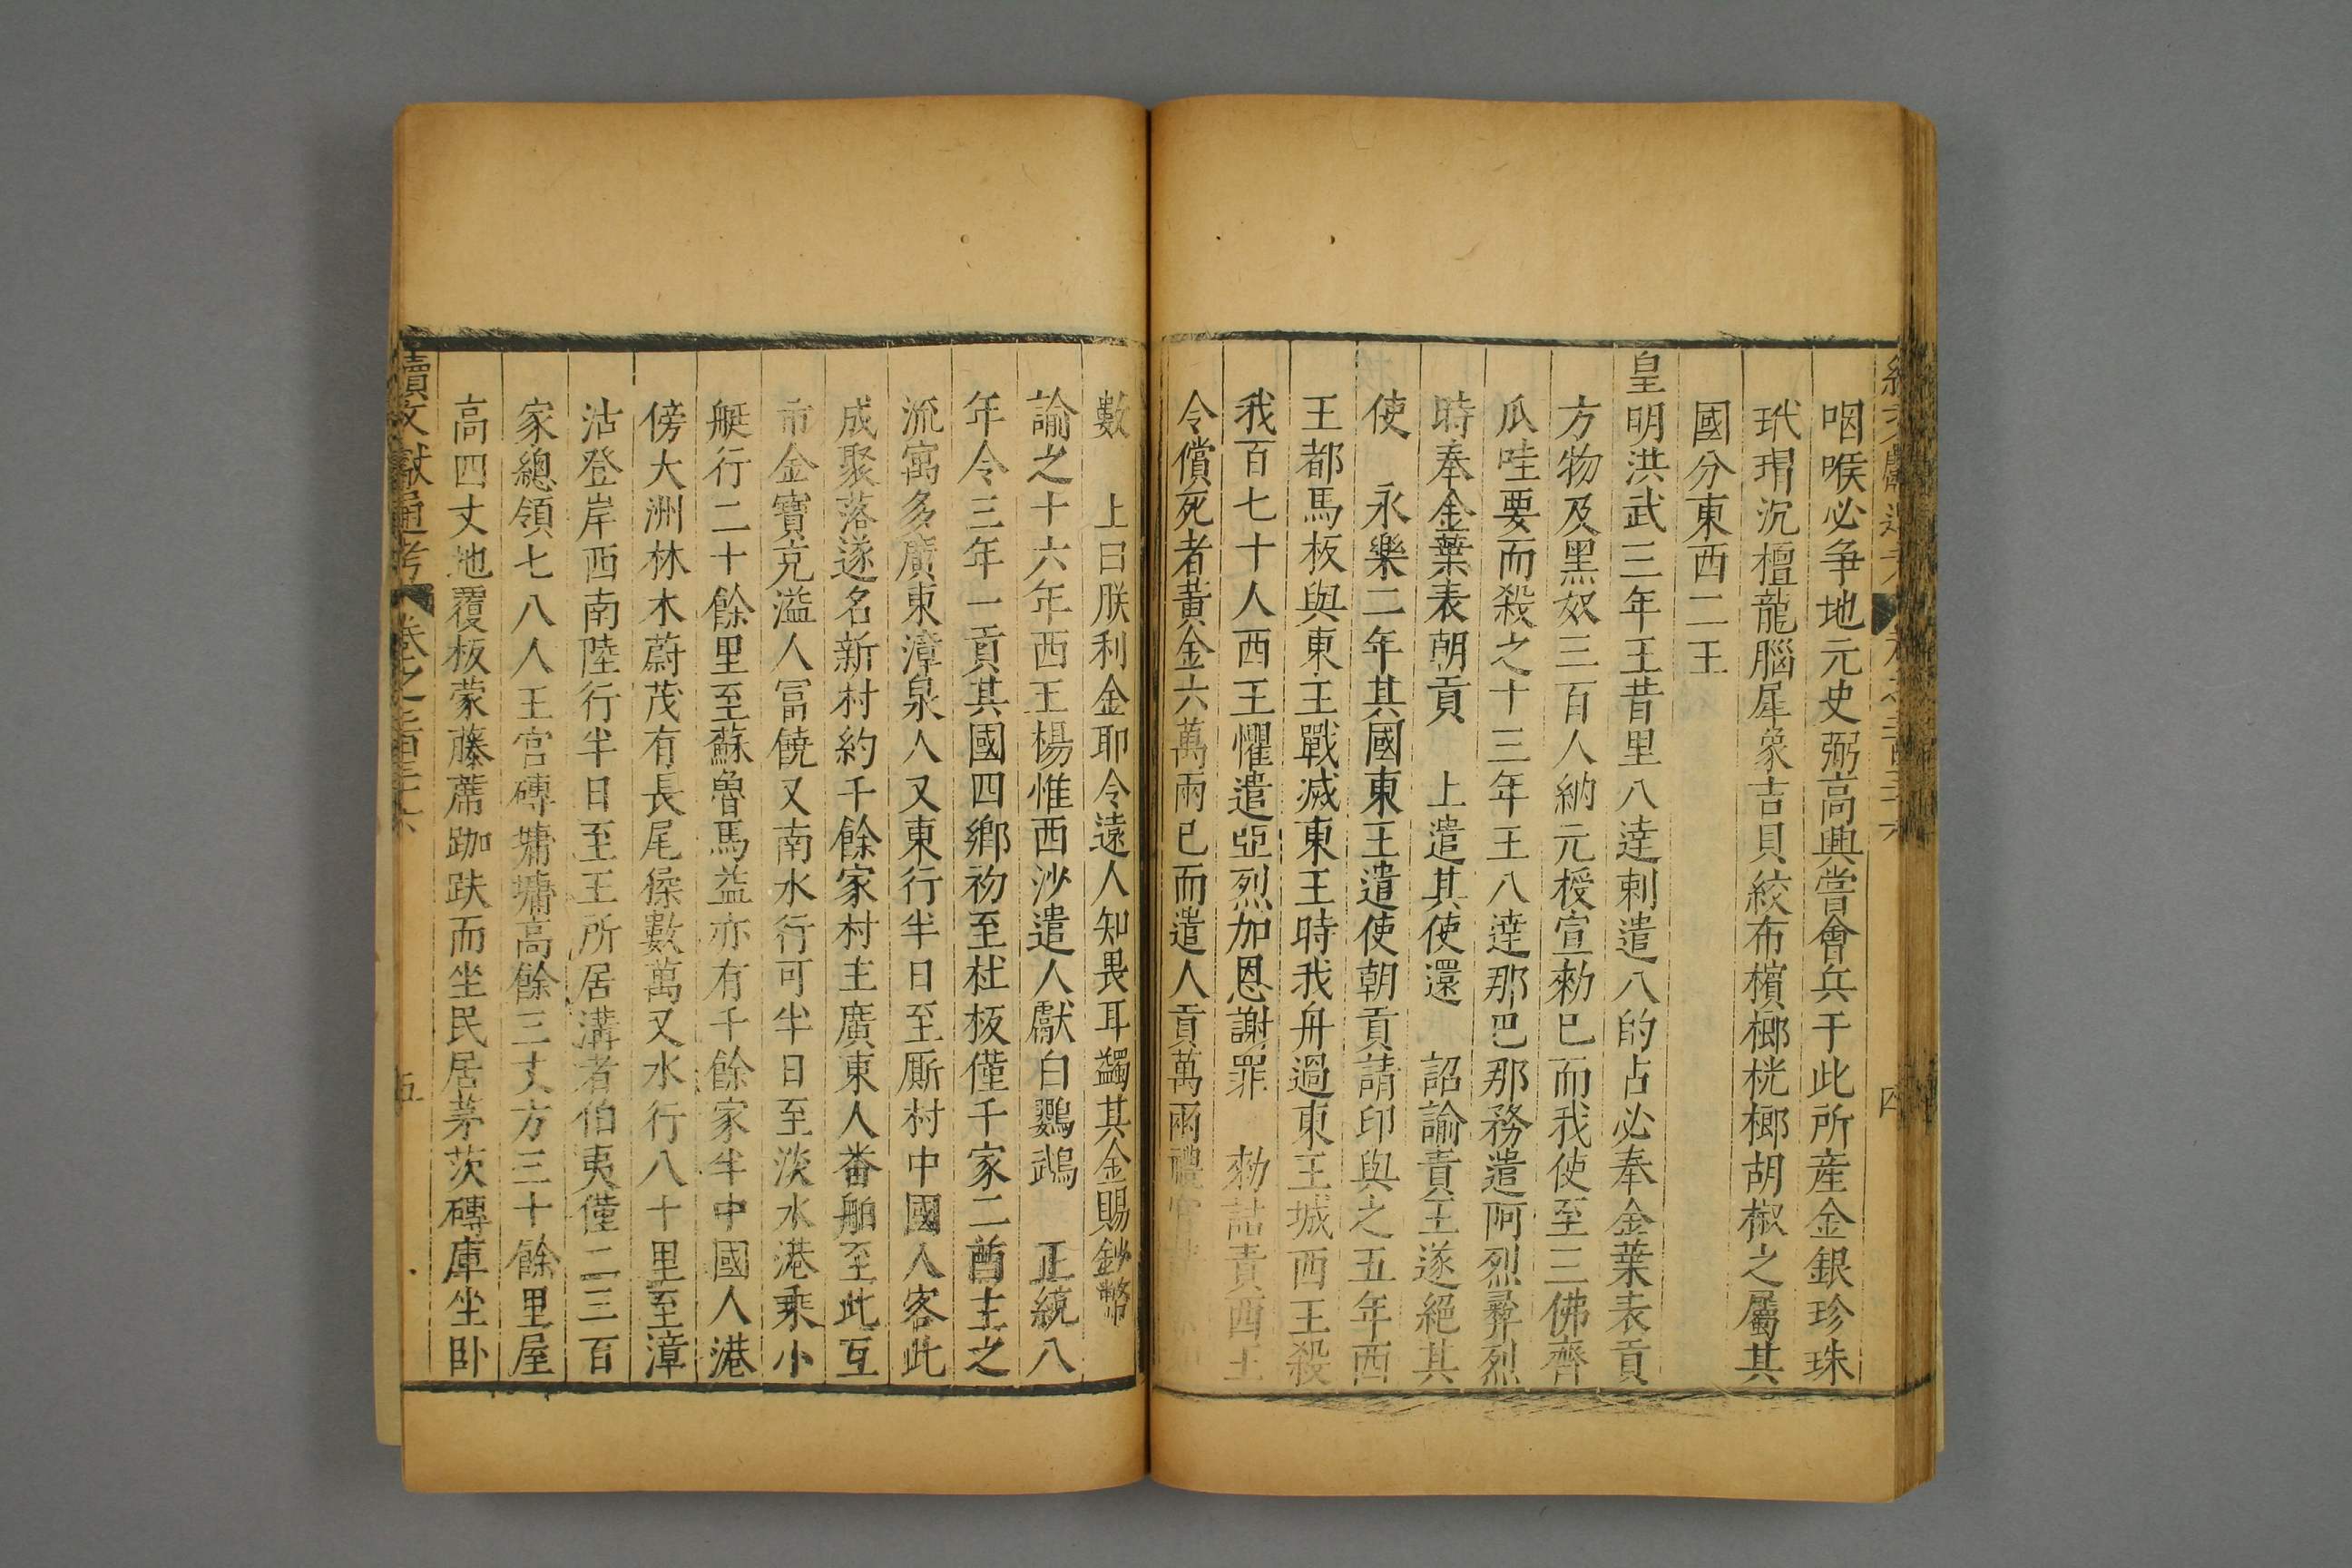 咽喉必爭地元史弼高興嘗會兵于此所産金銀珍珠
玳瑁沉檀龍腦犀象吉貝絞布檳榔桄榔胡椒之屬其
國分東西二王
皇明洪武三年王昔里八達剌遣八的占必奉金葉表貢
方物及黑奴三百人納元授宣勑已而我使至三佛齊
瓜哇要而殺之十三年王八達那巴那務遣阿烈彛烈
時奉金葉表朝貢 上遣其使還 詔諭責王遂絕其
使 永樂二年其國東王遣使朝貢請印與之五年西
王都馬板與東王戰滅東王時我舟過東王城西王殺
我百七十人西王懼遣亞烈加恩謝罪 勑詰責西王
令償死者黃金六萬兩已而遣人貢萬兩禮官
數 上曰朕利金耶令遠人知畏耳蠲其金賜鈔幣
諭之十六年西王楊惟西沙遣人獻白鸚鵡 正統八
年令三年一貢其國四鄉初至杜板僅千家二酋主之
流寓多廣東漳泉人又東行半日至厮村中國人客此
成聚落遂名新村約千餘家村主廣東人番舶至此互
市金寶充溢人冨饒又南水行可半日至淡水港乘小
艇行二十餘里至蘇魯馬益亦有千餘家半中國人港
傍大洲林木蔚茂有長尾猴數萬又水行八十里至漳
沽登岸西南陸行半日至王所居溝者伯夷僅二三百
家總領七八人王宮磚墉墉高餘三丈方三十餘里屋
高四丈地覆板蒙藤蓆跏趺而坐民居茅茨磚庫坐卧
續文獻通考 卷之二百三十六
五